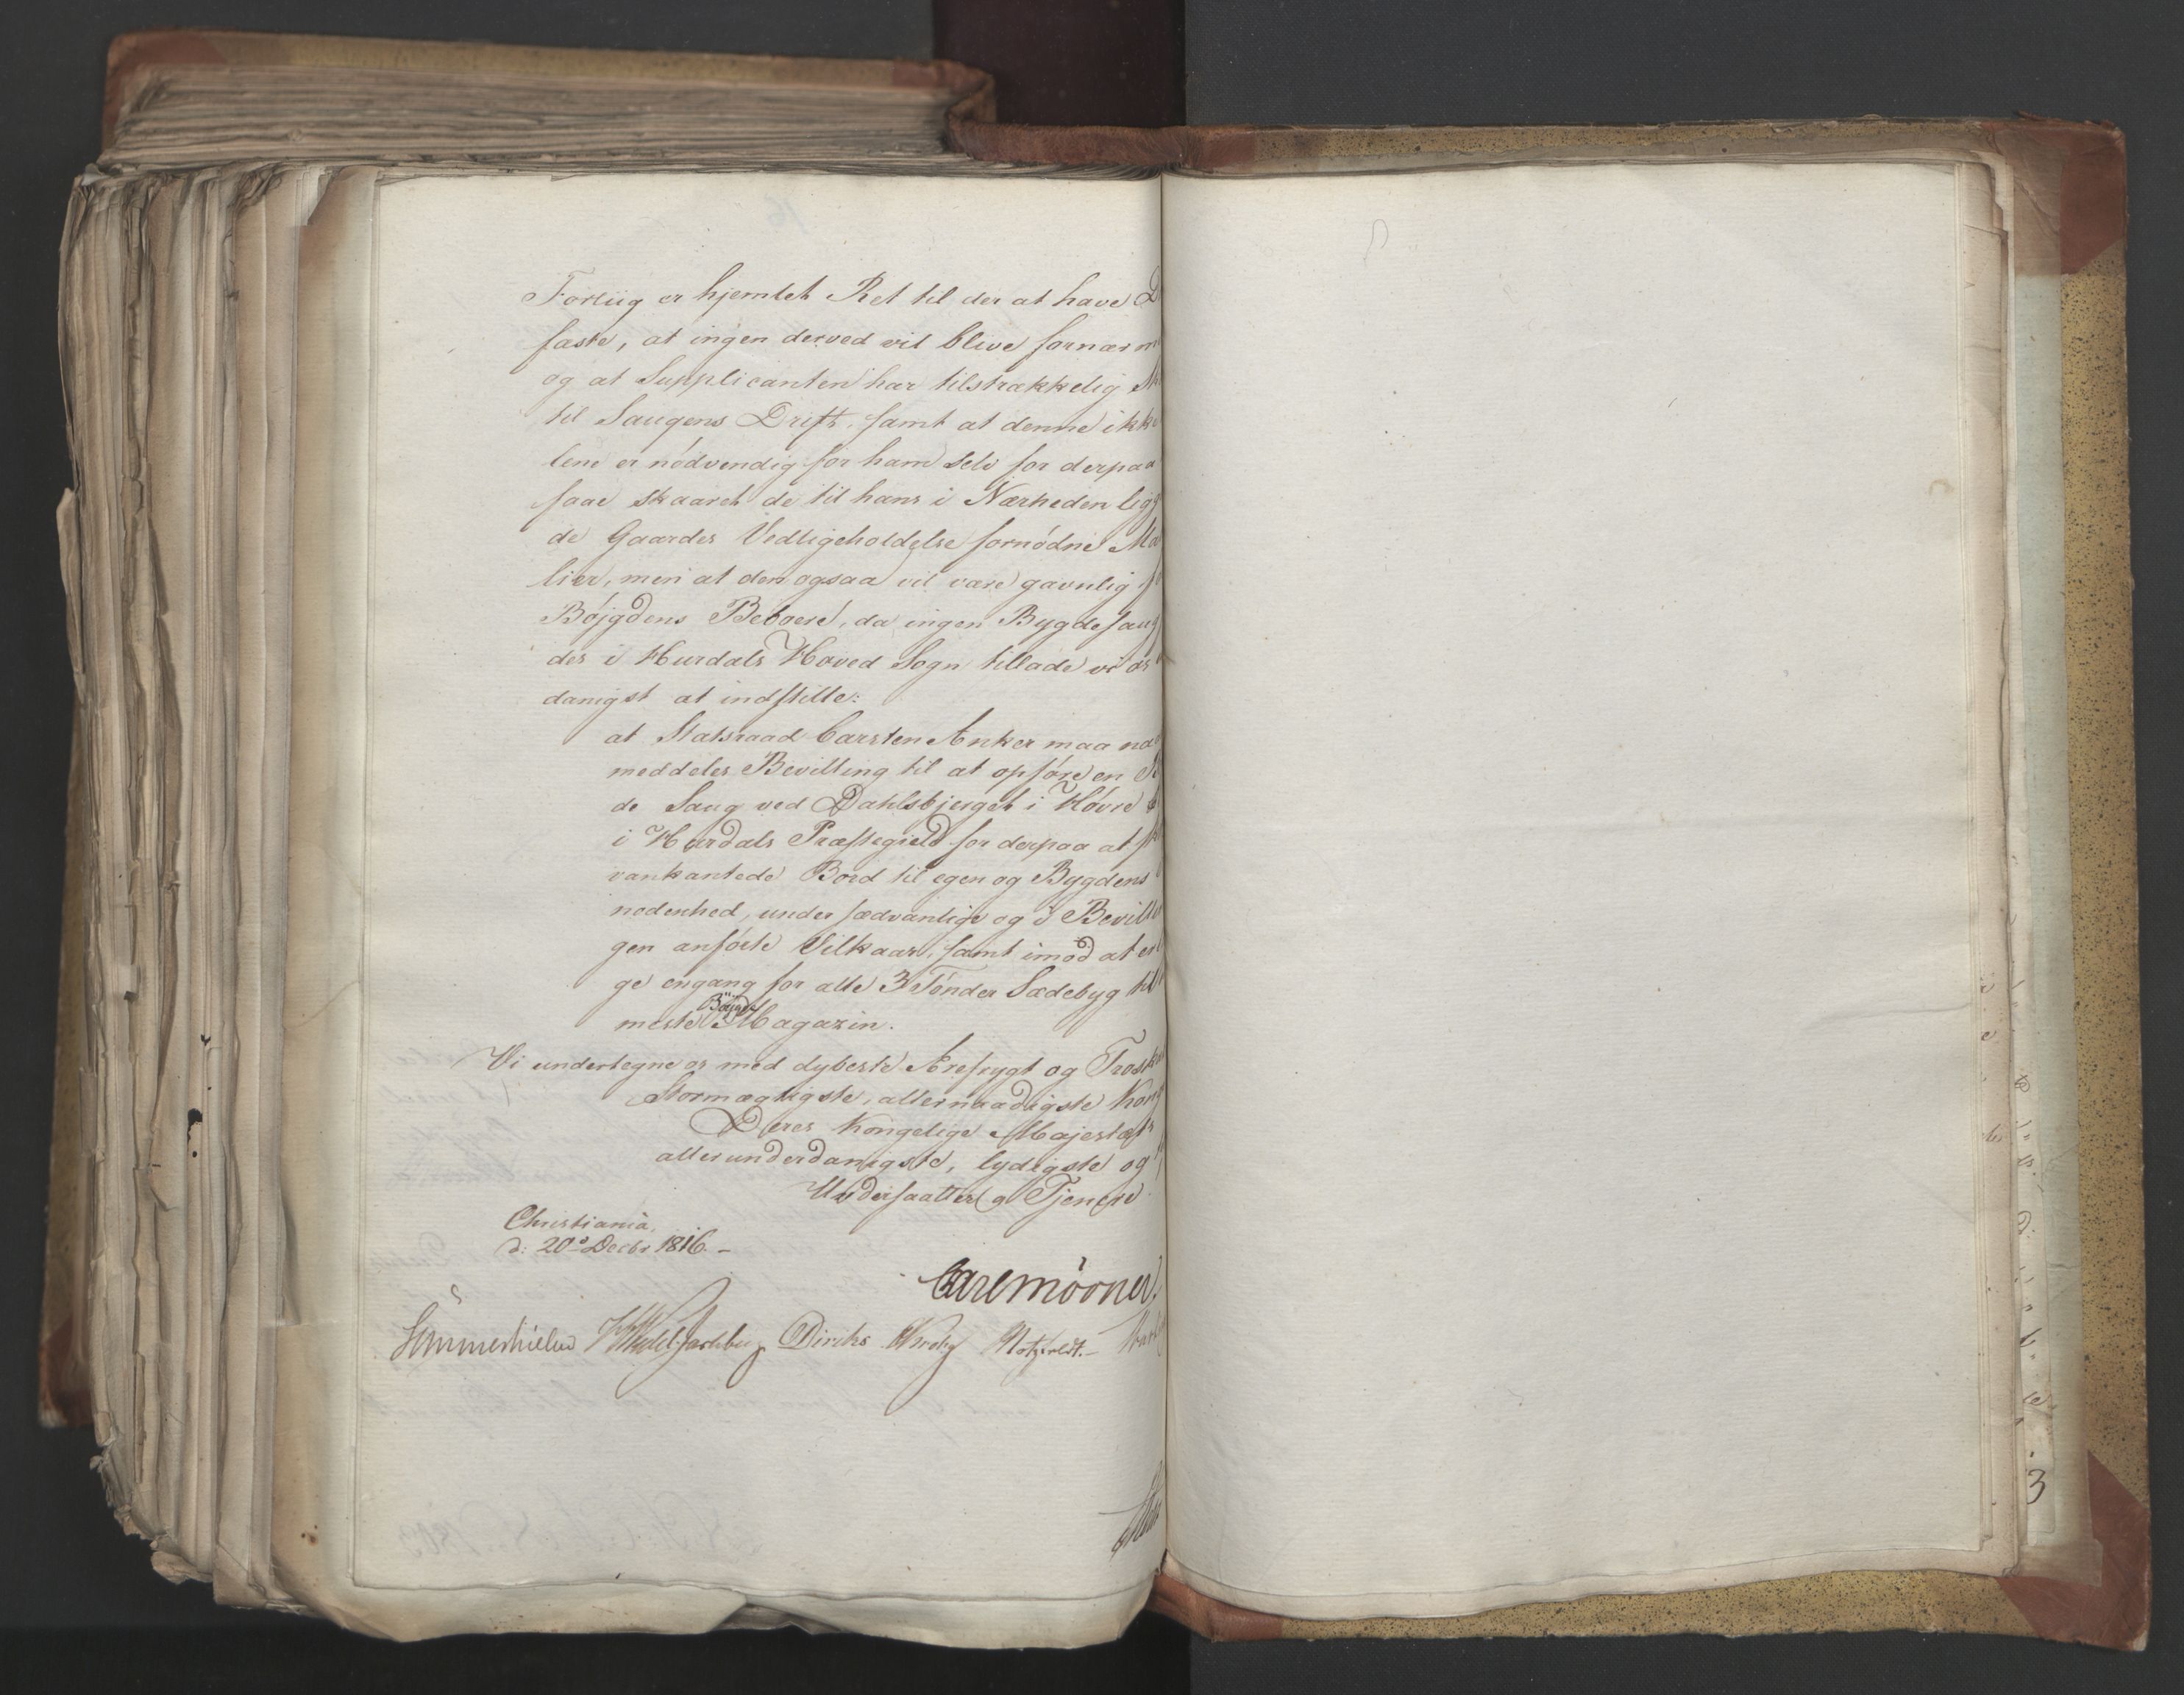 Forliig er hjemlet Ret til der at have D
fæste, at ingen derved vil blive fornærm
og at Supplicanten har tilstrækkelig Sk
til Saugens Drift, samt at denne ikke
lene er nödvendig for ham selv for derpaa
faae skaaret de til hans i Nærheden ligg
de Gaardes Vedligeholdelse fornödne Ma
lier, men at den ogsaa vil være gavnlig fo
Böjgdens Beboere, da ingen Bygdesaug
des i Hurdals Hoved Sogn tillade vi os
danigst at indstille:
at Statsraad Carsten Anker maa naa
meddeles Bevilling til at opföre en
de Saug ved Dahlsbjerget i Hövre
i Hurdals Præstegield for derpaa at sk
vankantede Bord til egen og Bygdens
nödenhed, under sædvanlige og i Bevillin
gen anförte Vilkaar, samt imod at erl
ge engang for alle 3 Tönder Sædebyg til
Bøjgde
meste Magazin.
Vi undertegne os med dybeste Ærefrygt og Trosk
Stormægtigste, allernaadigste Kong
Deres Kongelige Majestæts
allerunderdanigste, lydigste og
Undersaatter og Tjenere
Christiania,
d: 20de Decbr 1816.
Carl Mörner.
Sommerhielm Wedel Jarlsberg Diriks Krohg Motzfeldt.
3